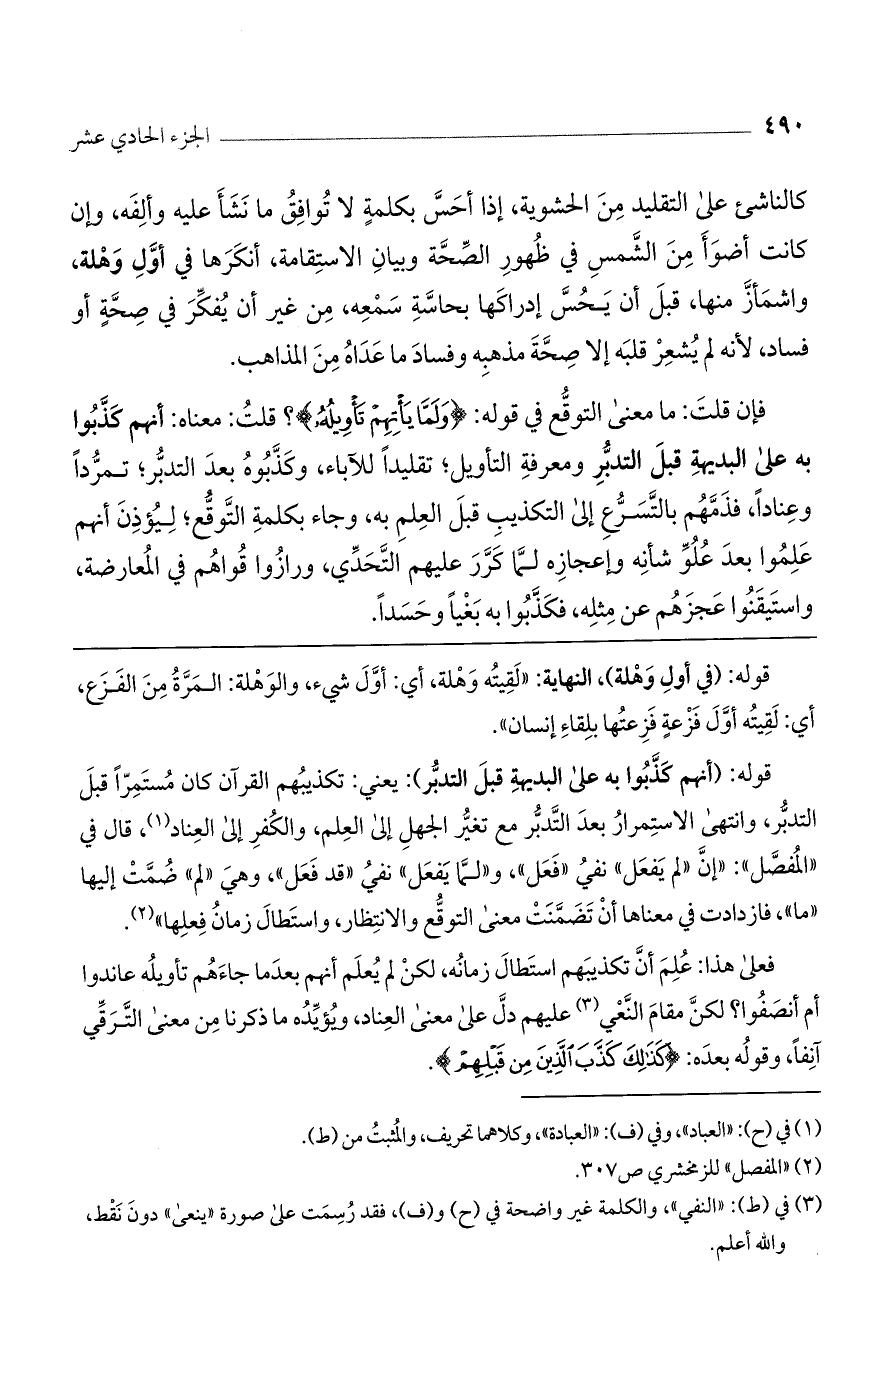 ٤٩٠ ــــــــــــــــــــ الجزء الحادي عشر
كالناشئ علىٰ التقليد مِنَ الحشوية، إذا أحَسَّ بكلمةٍ لا تُوافِقُ ما نَشَأَ عليه وألِفَه، وإن
كانت أضوَأَ مِنَ الشَّمسِ في ظُهورِ الصِّحَّة وبيانِ الاستِقامة، أنكَرَها في أوَّلِ وَهْلة،
واشمَأزَّ منها، قبلَ أن يَحُسَّ إدراكَها بحاسَّةِ سَمْعِه، مِن غير أن يُفكِّرَ في صِحَّةٍ أو
فساد، لأنه لم يُشعِرْ قلبَه إلا صِحَّةَ مذهبِه وفسادَ ما عَدَاهُ مِنَ المذاهب.
فإن قلتَ: ما معنىٰ التوقُّع في قوله: ﴿وَلَمَّا يَأْتِهِمْ تَأْوِيلُهُۥ﴾؟ قلتُ: معناه: أنهم كَذَّبُوا
به علىٰ البديهةِ قبلَ التدبُّرِ ومعرفةِ التأويل؛ تقليداً للآباء، وكَذَّبُوهُ بعدَ التدبُّر؛ تمرُّداً
وعِناداً، فذَمَّهُم بالتَّسَرُّعِ إلىٰ التكذيبِ قبلَ العِلمِ به، وجاء بكلمةِ التَّوقُّع؛ لِيُؤذِنَ أنهم
عَلِمُوا بعدَ عُلُوِّ شأنِه وإعجازِه لمَّا كَرَّرَ عليهم التَّحَدِّي، ورازُوا قُواهُم في المُعارضة،
واستَيقَنُوا عَجزَهُم عن مِثلِه، فكَذَّبُوا به بَغْياً وحَسَداً.
قوله: (في أولِ وَهْلة)، النهاية: «لَقِيتُه وَهْلة، أي: أوَّلَ شيء، والوَهْلة: المَرَّةُ مِنَ الفَزَع،
أي: لَقِيتُه أوَّلَ فَزْعةٍ فَزِعتُها بلِقاءِ إنسان».
قوله: (أنهم كَذَّبُوا به علىٰ البديهةِ قبلَ التدبُّر): يعني: تكذيبُهم القرآن كان مُستَمِرّاً قبلَ
التدبُّر، وانتهىٰ الاستِمرارُ بعدَ التَّدبُّر مع تغيُّر الجهلِ إلىٰ العِلم، والكُفرِ إلىٰ العِناد(١)، قال في
«المُفصَّل»: «إنَّ «لم يَفعَل» نفيُ «فَعَل»، و«لمَّا يَفعَل» نفيُ «قد فَعَل»، وهيَ «لم» ضُمَّتْ إليها
«ما»، فازدادت في معناها أنْ تَضَمَّنَتْ معنىٰ التوقُّع والانتِظار، واستَطالَ زمانُ فِعلِها»(٢).
فعلىٰ هذا: عُلِمَ أنَّ تكذيبَهم استَطالَ زمانُه، لكنْ لم يُعلَم أنهم بعدَما جاءَهُم تأويلُه عاندوا
أم أنصَفُوا؟ لكنَّ مقامَ النَّعْي(٣) عليهم دلَّ علىٰ معنىٰ العِناد، ويُؤيِّدُه ما ذكرنا مِن معنىٰ التَّرقِّي
آنِفاً، وقولُه بعدَه: ﴿كَذَٰلِكَ كَذَّبَ ٱلَّذِينَ مِن قَبْلِهِمْ﴾.
(١) في (ح): «العباد»، وفي (ف): «العبادة»، وكلاهما تحريف، والمُثبتُ من (ط).
(٢) «المفصل» للزمخشري ص٣٠٧.
(٣) في (ط): «النفي»، والكلمة غير واضحة في (ح) و(ف)، فقد رُسِمَت علىٰ صورة «ينعىٰ» دونَ نَقْط،
والله أعلم.